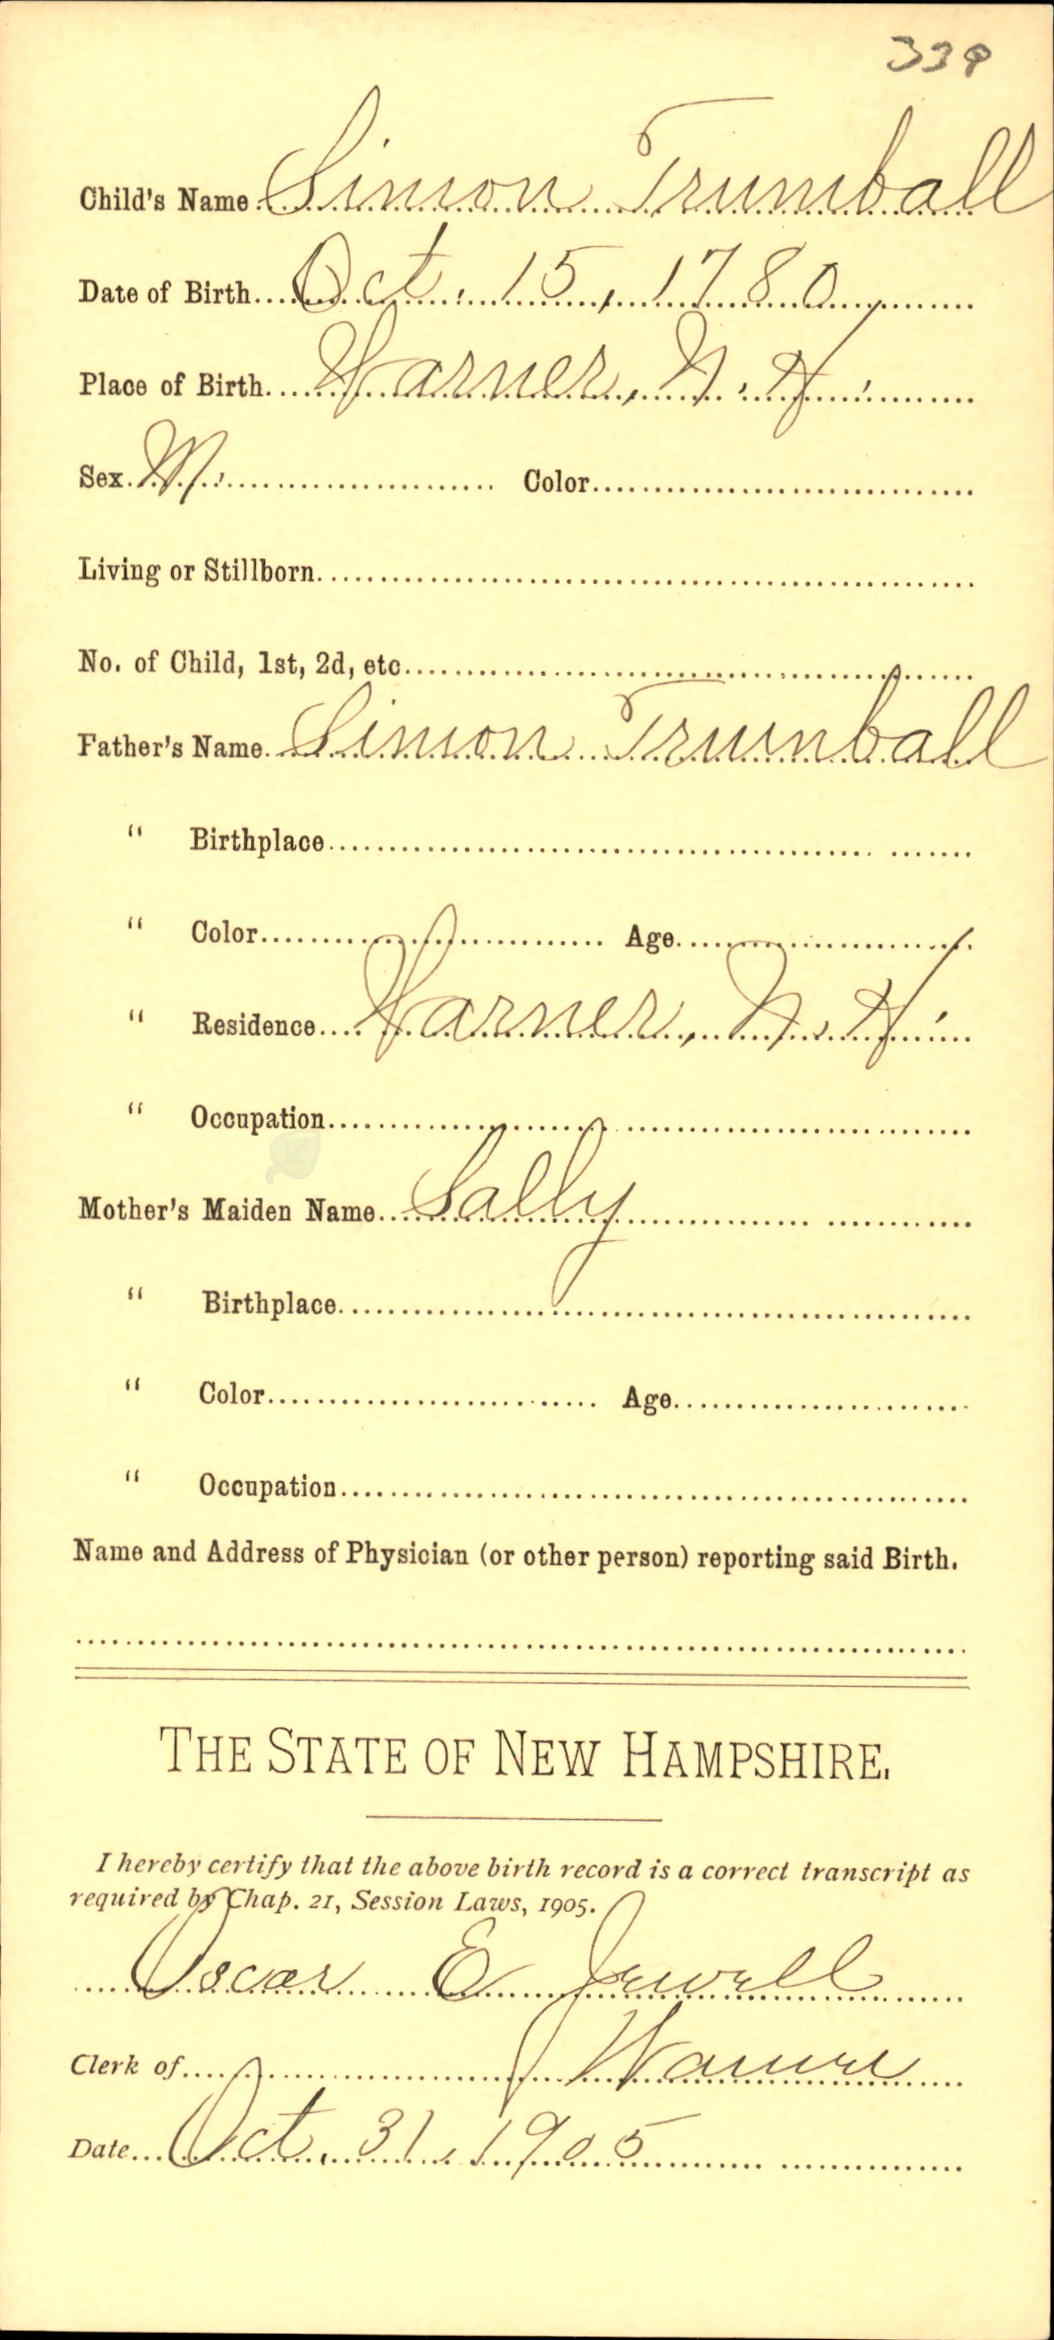 339
Child's Name Simon Trumball
Date of Birth Oct. 15, 1780
Place of Birth Warner, N. H.
Sex M. Color
Living or Stillborn
No. of Child, 1st, 2d, etc
Father's Name Simon Trumball
" Birthplace
" Color Age
" Residence Warner, N. H.
" Occupation
Mother's Maiden Name Sally
" Birthplace
" Color Age
" Occupation
Name and Address of Physician (or other person) reporting said Birth.
THE STATE OF NEW HAMPSHIRE.
I hereby certify that the above birth record is a correct transcript as
required by Chap. 21, Session Laws, 1905.
Oscar E Jewell
Clerk of Warner
Date Oct. 31, 1905